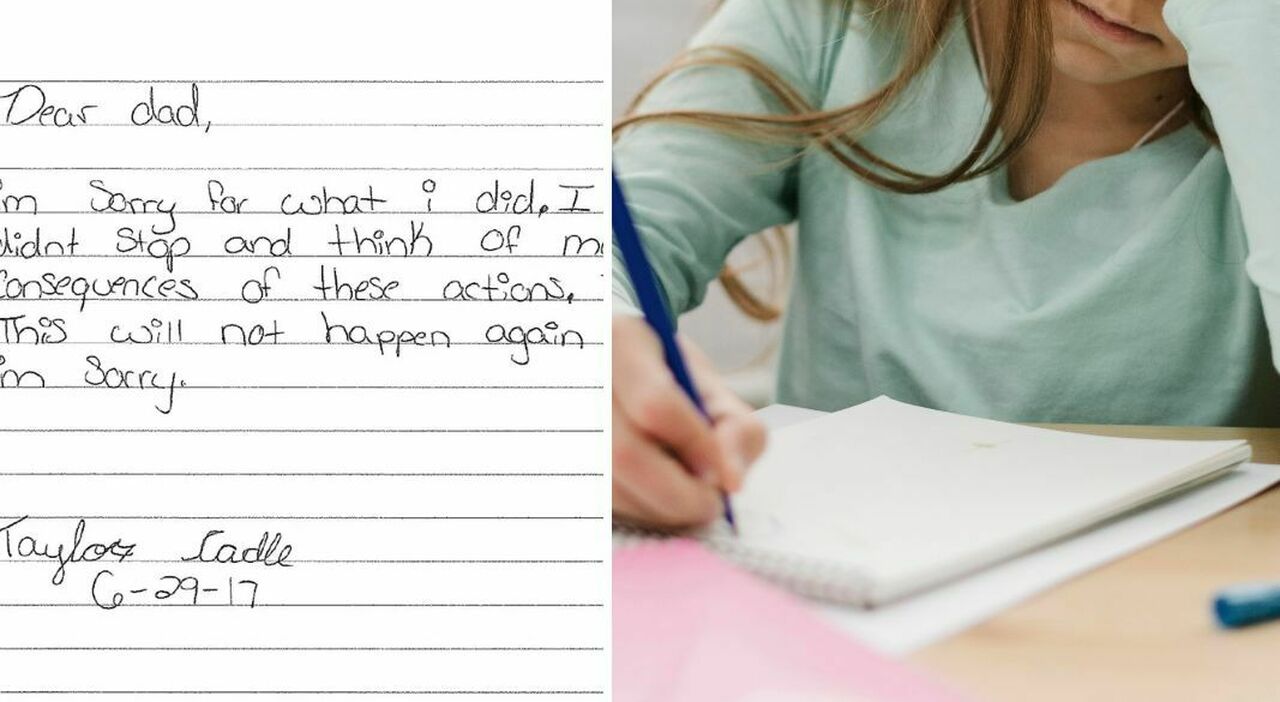 Dear dad,
im Sorry for what i did. I
didnt Stop and think of m
Consequences of these actions.
This will not happen again
im Sorry.
Taylor Cadle
6-29-17